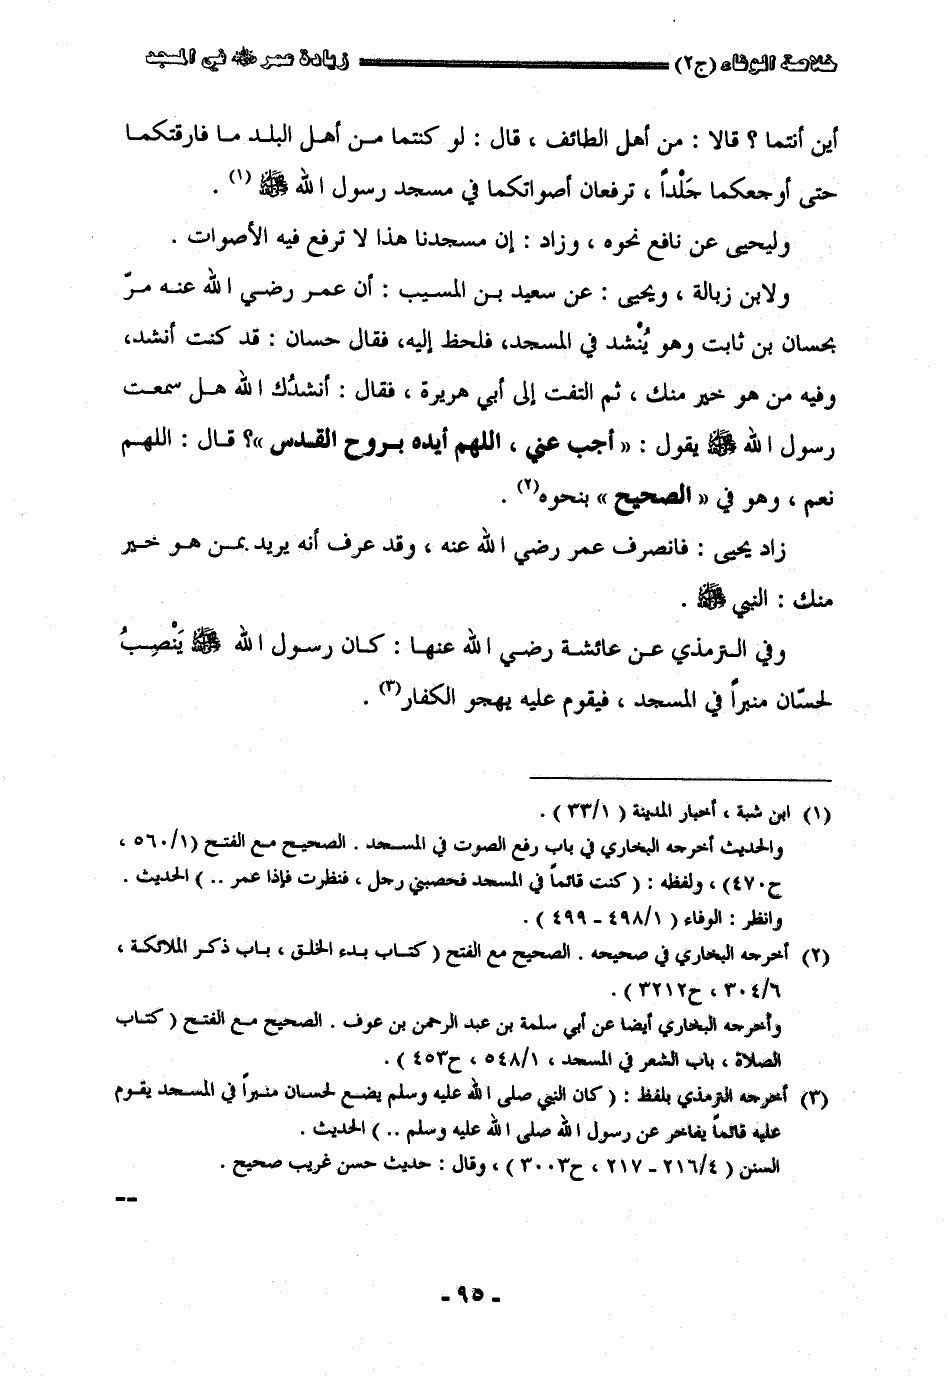 خلاصة الوفاء (ج٢) زيادة عمر ﷺ في المسجد
أين أنتما ؟ قالا : من أهل الطائف ، قال : لو كنتما مـن أهـل البلـد مـا فارقتكمـا
حتى أوجعكما جَلْداً ، ترفعان أصواتكما في مسجد رسول الله ﷺ (١) .
وليحيى عن نافع نحوه ، وزاد : إن مسجدنا هذا لا ترفع فيه الأصوات .
ولابن زبالة ، ويحيى : عن سعيد بـن المسيب : أن عمـر رضـي الله عنـه مـرّ
بحسان بن ثابت وهو يُنْشد في المسجد، فلحظ إليه، فقال حسان : قد كنت أنشد،
وفيه من هو خير منك ، ثم التفت إلى أبي هريرة ، فقال : أنشدُك الله هـل سمعـت
رسول الله ﷺ يقول : « أجب عني ، اللهم أيده بـروح القـدس »؟ قـال : اللهـم
نعم ، وهو في « الصحيح » بنحوه(٢) .
زاد يحيى : فانصرف عمر رضي الله عنه ، وقد عرف أنه يريد بمـن هـو خـير
منك : النبي ﷺ .
وفي الـترمذي عـن عائشـة رضـي الله عنهـا : كـان رسـول الله ﷺ يَنْصِـبُ
لحسّان منبراً في المسجد ، فيقوم عليه يهجو الكفار(٣) .
(١) ابن شبة ، أخبار المدينة ( ٣٣/١ ) .
والحديث أخرجه البخاري في باب رفع الصوت في المسـجد . الصحيـح مـع الفتـح (٥٦٠/١ ،
ح٤٧٠) ، ولفظه : ( كنت قائمـاً في المسجد فحصبني رجل ، فنظرت فإذا عمر .. ) الحديث .
وانظر : الوفاء ( ٤٩٨/١ ـ ٤٩٩ ) .
(٢) أخرجه البخاري في صحيحه . الصحيح مع الفتح ( كتـاب بـدء الخلـق ، بـاب ذكـر الملائكـة ،
٣٠٤/٦ ، ح٣٢١٢ ) .
وأخرجه البخاري أيضا عن أبي سلمة بن عبد الرحمن بن عوف . الصحيح مـع الفتـح ( كتـاب
الصلاة ، باب الشعر في المسجد ، ٥٤٨/١ ، ح٤٥٣ ) .
(٣) أخرجه الترمذي بلفظ : ( كان النبي صلى الله عليه وسلم يضـع لحسان منـبراً في المسـجد يقـوم
عليه قائمـاً يفاخر عن رسول الله صلى الله عليه وسلم .. ) الحديث .
السنن ( ٢١٦/٤ ـ ٢١٧ ، ح٣٠٠٣ ) ، وقال : حديث حسن غريب صحيح .
ـ ٩٥ ـ